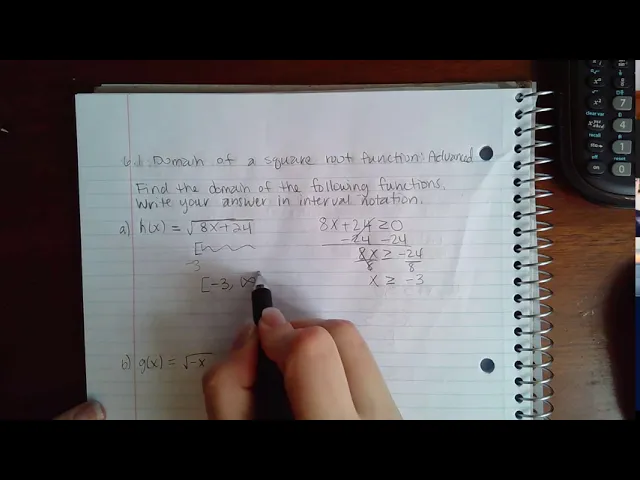 6.1. Domain of a square root function: Advanced
Find the domain of the following functions.
Write your answer in interval notation.
a) h(x) = √8x+24
8x+24 ≥ 0
-24 -24
[
8x ≥ -24
8 8
-3
[-3, ∞
x ≥ -3
b) g(x) = √-x
7
4
1
0